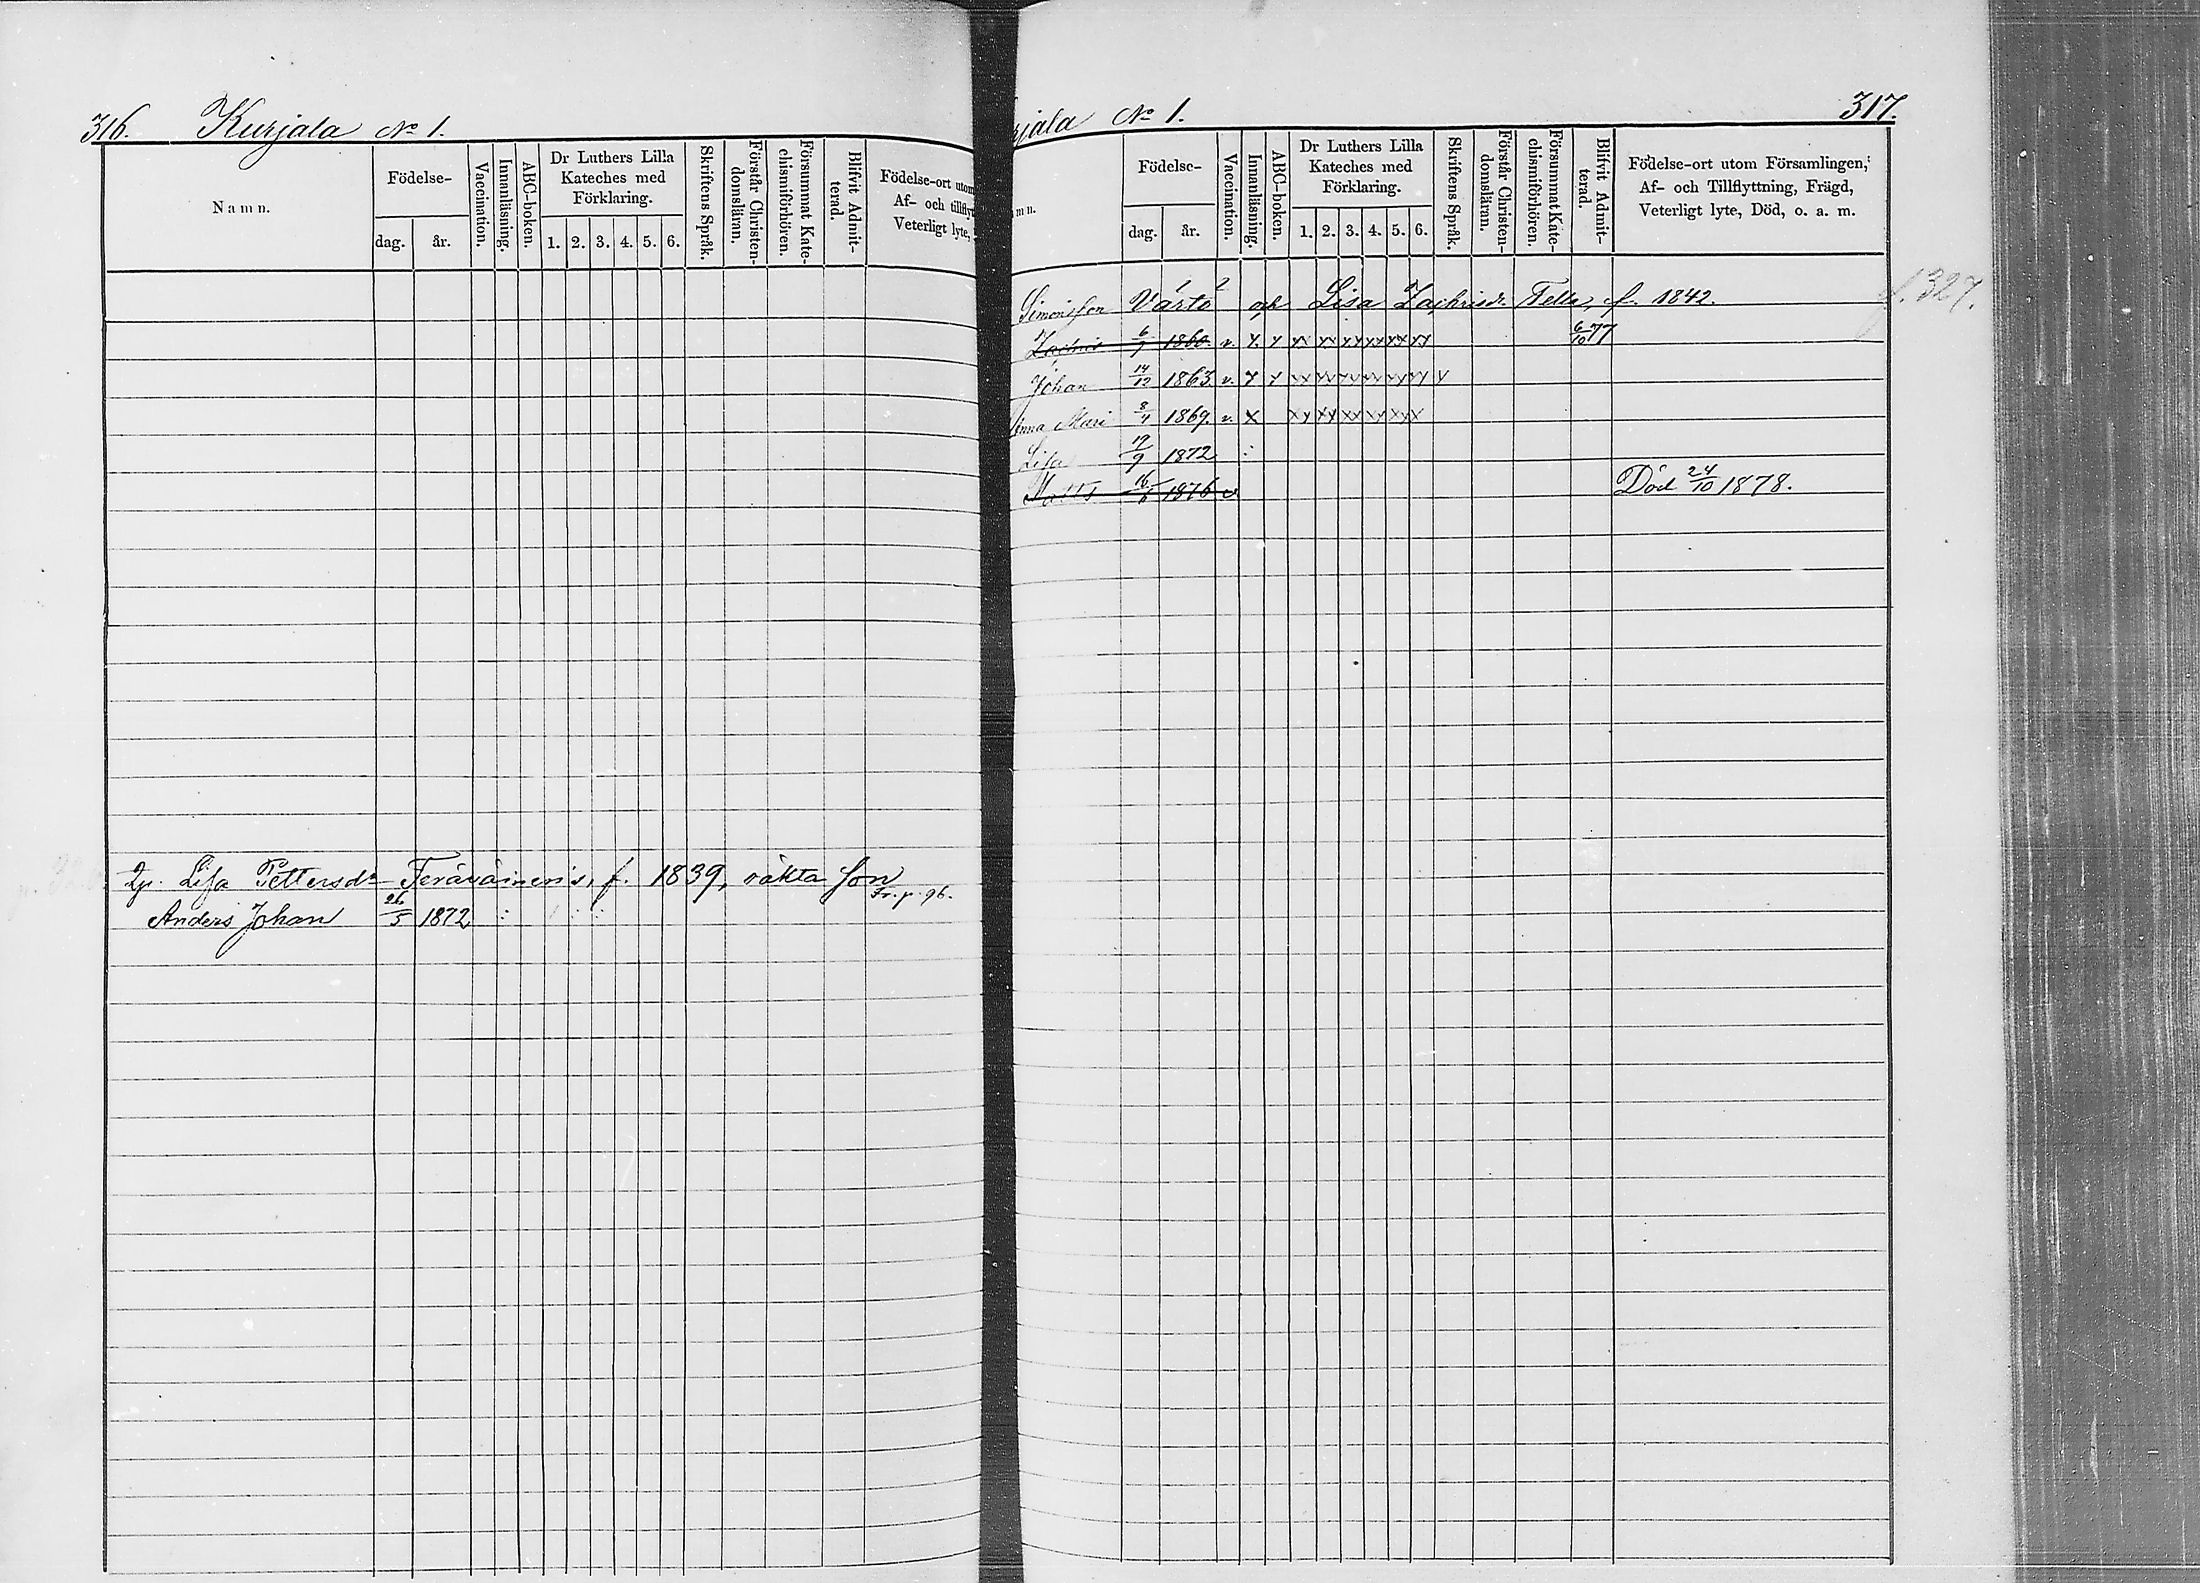 316. Kurjala No 1.
Namn.
Födelse-
dag. år.
Vaccination.
Innanläsning.
ABC-boken.
Dr Luthers Lilla Kateches med Förklaring.
1. 2. 3. 4. 5. 6.
Skriftens Språk.
Förstår Christendomsläran.
Försummat Katechismiförhören.
Blifvit Admitterad.
Födelse-ort utom
Af- och tillflyt
Veterligt lyte,
Lisa Pettersdr Teräväinen's, f. 1839, oäkta son
Fr. p. 96.
Anders Johan 26/5 1872
rjala No 1. 317.
mn.
Födelse-
dag. år.
Vaccination.
Innanläsning.
ABC-boken.
Dr Luthers Lilla
Kateches med
Förklaring.
1. 2. 3. 4. 5. 6.
Skriftens Språk.
Förstår Christendomsläran.
Försummat Katechismiförhören.
Blifvit Admitterad.
Födelse-ort utom Församlingen,
Af- och Tillflyttning, Frägd,
Veterligt lyte, Död, o. a. m.
Simonsson Värtö och Lisa Zachrisdr Tella, f. 1842.
p. 327.
Zachris 1860. v. x x xx xx xx xx xx xx 6/10 77
Johan 14/12 1863 v. x x xx xx xx xx xx xx x
Anna Mari 8/4 1869. v. x xx xx xx xx xx xx
Lisa 12/9 1872
Matts 16/6 1876 v Död 24/10 1878.